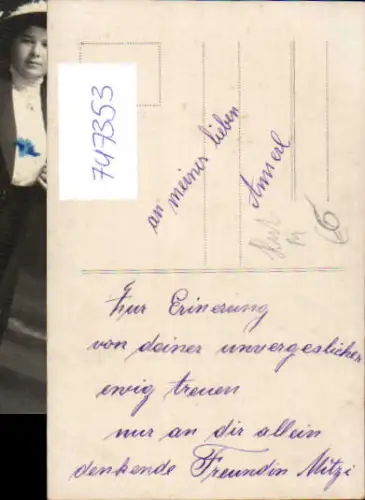 747353
an meiner lieben
Amcel
6
Zur Erinerung
von deiner unvergeslichen
ewig treuen
nur an dir allein
denkende Freundin Mitzi